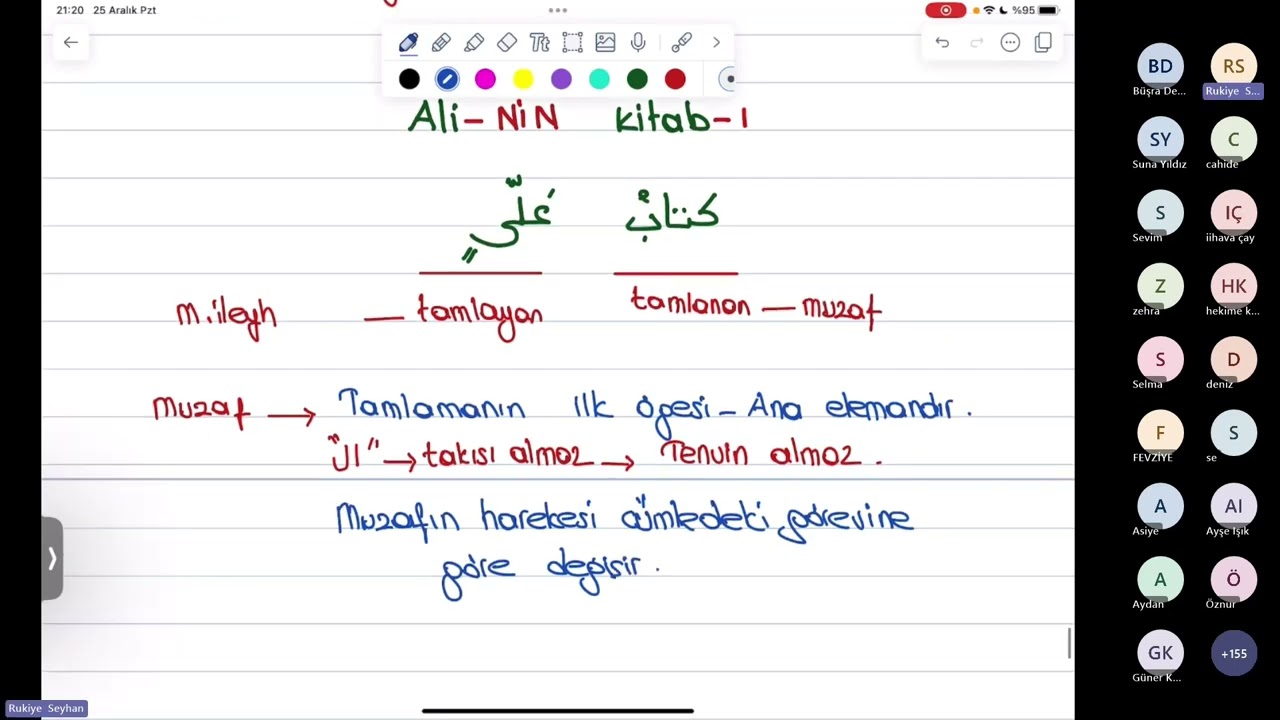 21:20 25 Aralık Pzt
%95
Tt
Ali-NiN kitab-ı
كتابُ عَلِيٍّ
m.ileyh — tamlayan tamlanan — muzaf
muzaf → Tamlamanın ilk ögesi - Ana elemandır.
"ال" → takısı almaz → Tenvin almaz.
Muzafın harekesi cümledeki görevine
göre değişir.
BD RS
Büşra De... Rukiye S...
SY C
Suna Yıldız cahide
S IÇ
Sevim iihava çay
Z HK
zehra hekime k...
S D
Selma deniz
F S
FEVZİYE se
A AI
Asiye Ayşe Işık
A Ö
Aydan Öznur
GK +155
Güner K...
Rukiye Seyhan